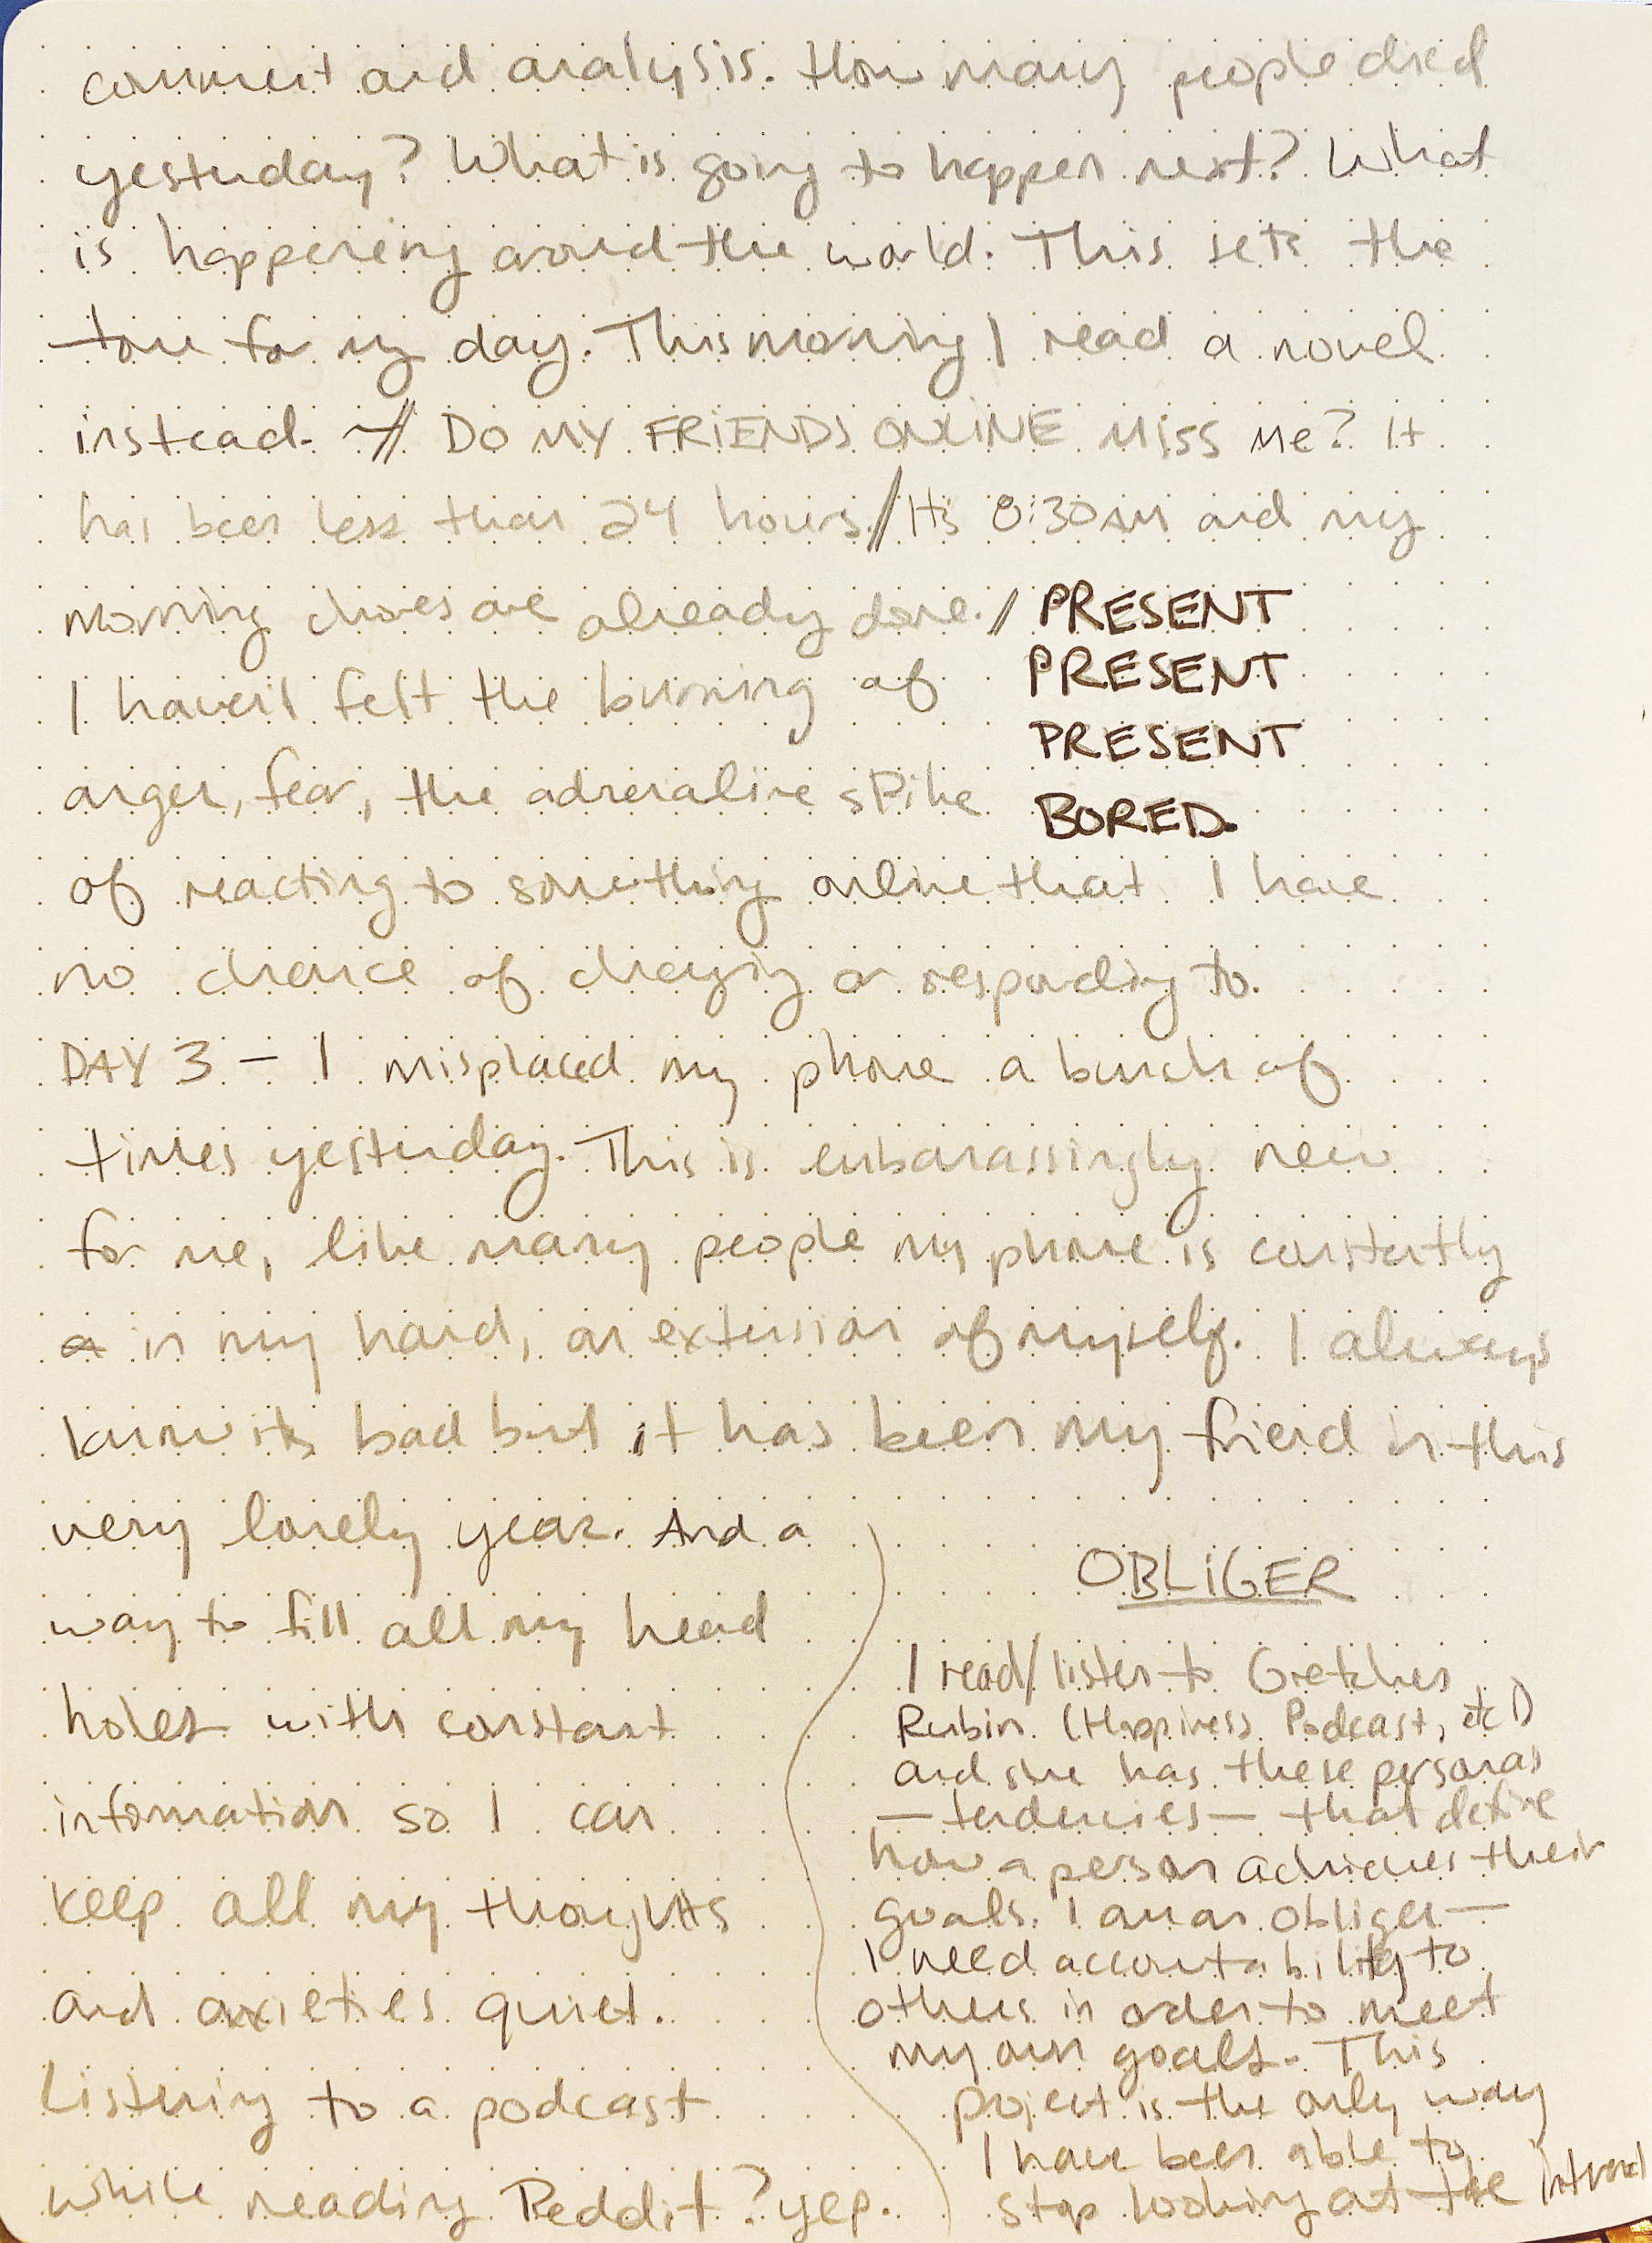 comment and analysis. How many people died
yesterday? What is going to happen next? What
is happening around the world. This sets the
tone for my day. This morning I read a novel
instead. // DO MY FRIENDS ONLINE MISS Me? It
has been less than 24 hours. // It's 8:30AM and my
morning chores are already done. //
PRESENT
PRESENT
PRESENT
BORED.
I haven't felt the burning of
anger, fear, the adrenaline spike
of reacting to something online that I have
no chance of changing or responding to.
DAY 3 - I misplaced my phone a bunch of
times yesterday. This is embarassingly new
for me, like many people my phone is constantly
a in my hand, an extension of myself. I always
know its bad but it has been my friend in this
very lonely year. And a
way to fill all my head
holes with constant
information so I can
keep all my thoughts
and anxieties quiet.
Listening to a podcast
while reading Reddit? yep.
OBLIGER
I read/listen to Gretchen
Rubin (Happiness Podcast, etc!)
and she has these personas
— tendencies — that define
how a person achieves their
goals. I am an obliger —
I need accountability to
others in order to meet
my own goals. This
project is the only way
I have been able to
stop looking at the internet